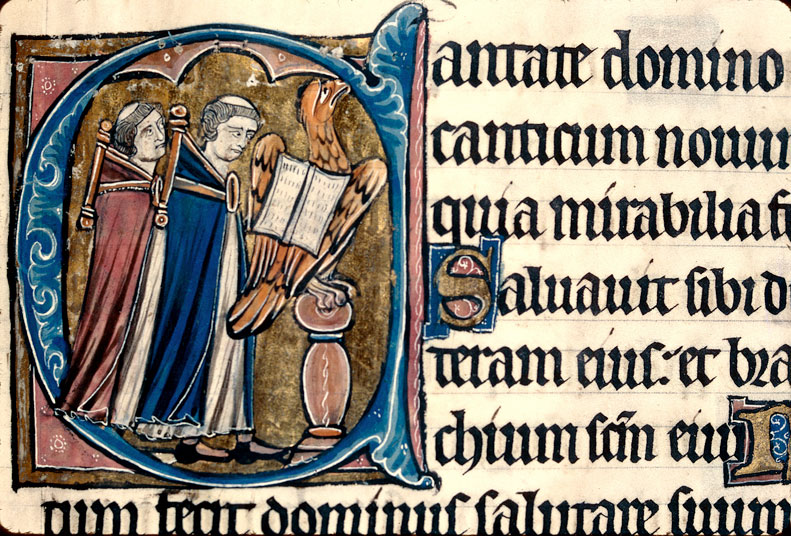 Cantate domino
canticum nouu
quia mirabilia fe
Saluauit sibi d
teram eius: et bra
chium scm̅ eiu N
tum fecit dominus salutare suum